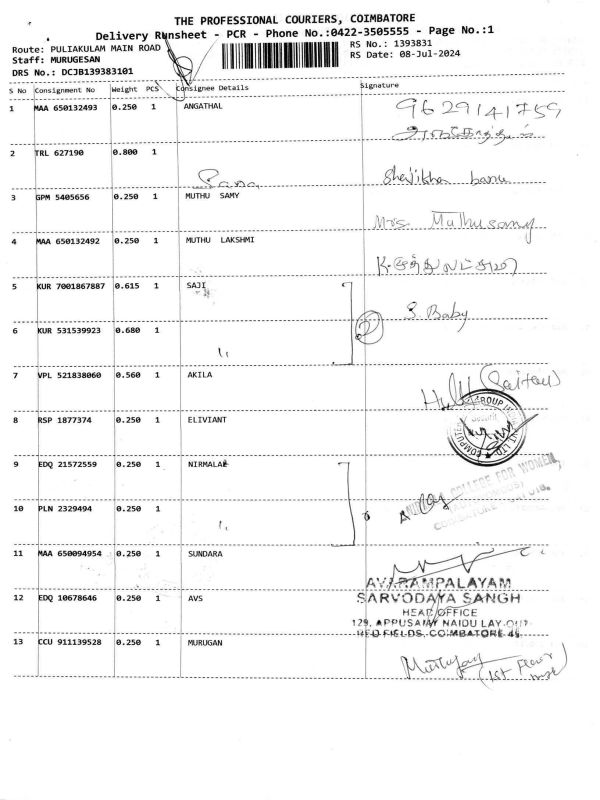 THE PROFESSIONAL COURIERS, COIMBATORE
Delivery Runsheet - PCR - Phone No.:0422-3505555 - Page No.:1
Route: PULIAKULAM MAIN ROAD
RS No.: 1393831
Staff: MURUGESAN
RS Date: 08-Jul-2024
DRS No.: DCJB139383101
S No Consignment No Weight PCS Consignee Details Signature
1 MAA 650132493 0.250 1 ANGATHAL 9629141759
2 TRL 627190 0.800 1 banu
3 GPM 5405656 0.250 1 MUTHU SAMY Mrs. Muthusamy
4 MAA 650132492 0.250 1 MUTHU LAKSHMI
5 KUR 7001867887 0.615 1 SAJI S. Baby
6 KUR 531539923 0.680 1 "
7 VPL 521838060 0.560 1 AKILA
8 RSP 1877374 0.250 1 ELIVIANT
9 EDQ 21572559 0.250 1 NIRMALA
COLLEGE FOR WOMEN,
10 PLN 2329494 0.250 1 "
11 MAA 650094954 0.250 1 SUNDARA
AVARAMPALAYAM
12 EDQ 10678646 0.250 1 AVS SARVODAYA SANGH
HEAD OFFICE
129, APPUSAMY NAIDU LAY-OUT
RED FIELDS, COIMBATORE-45
13 CCU 911139528 0.250 1 MURUGAN Murugan
(1st Floor